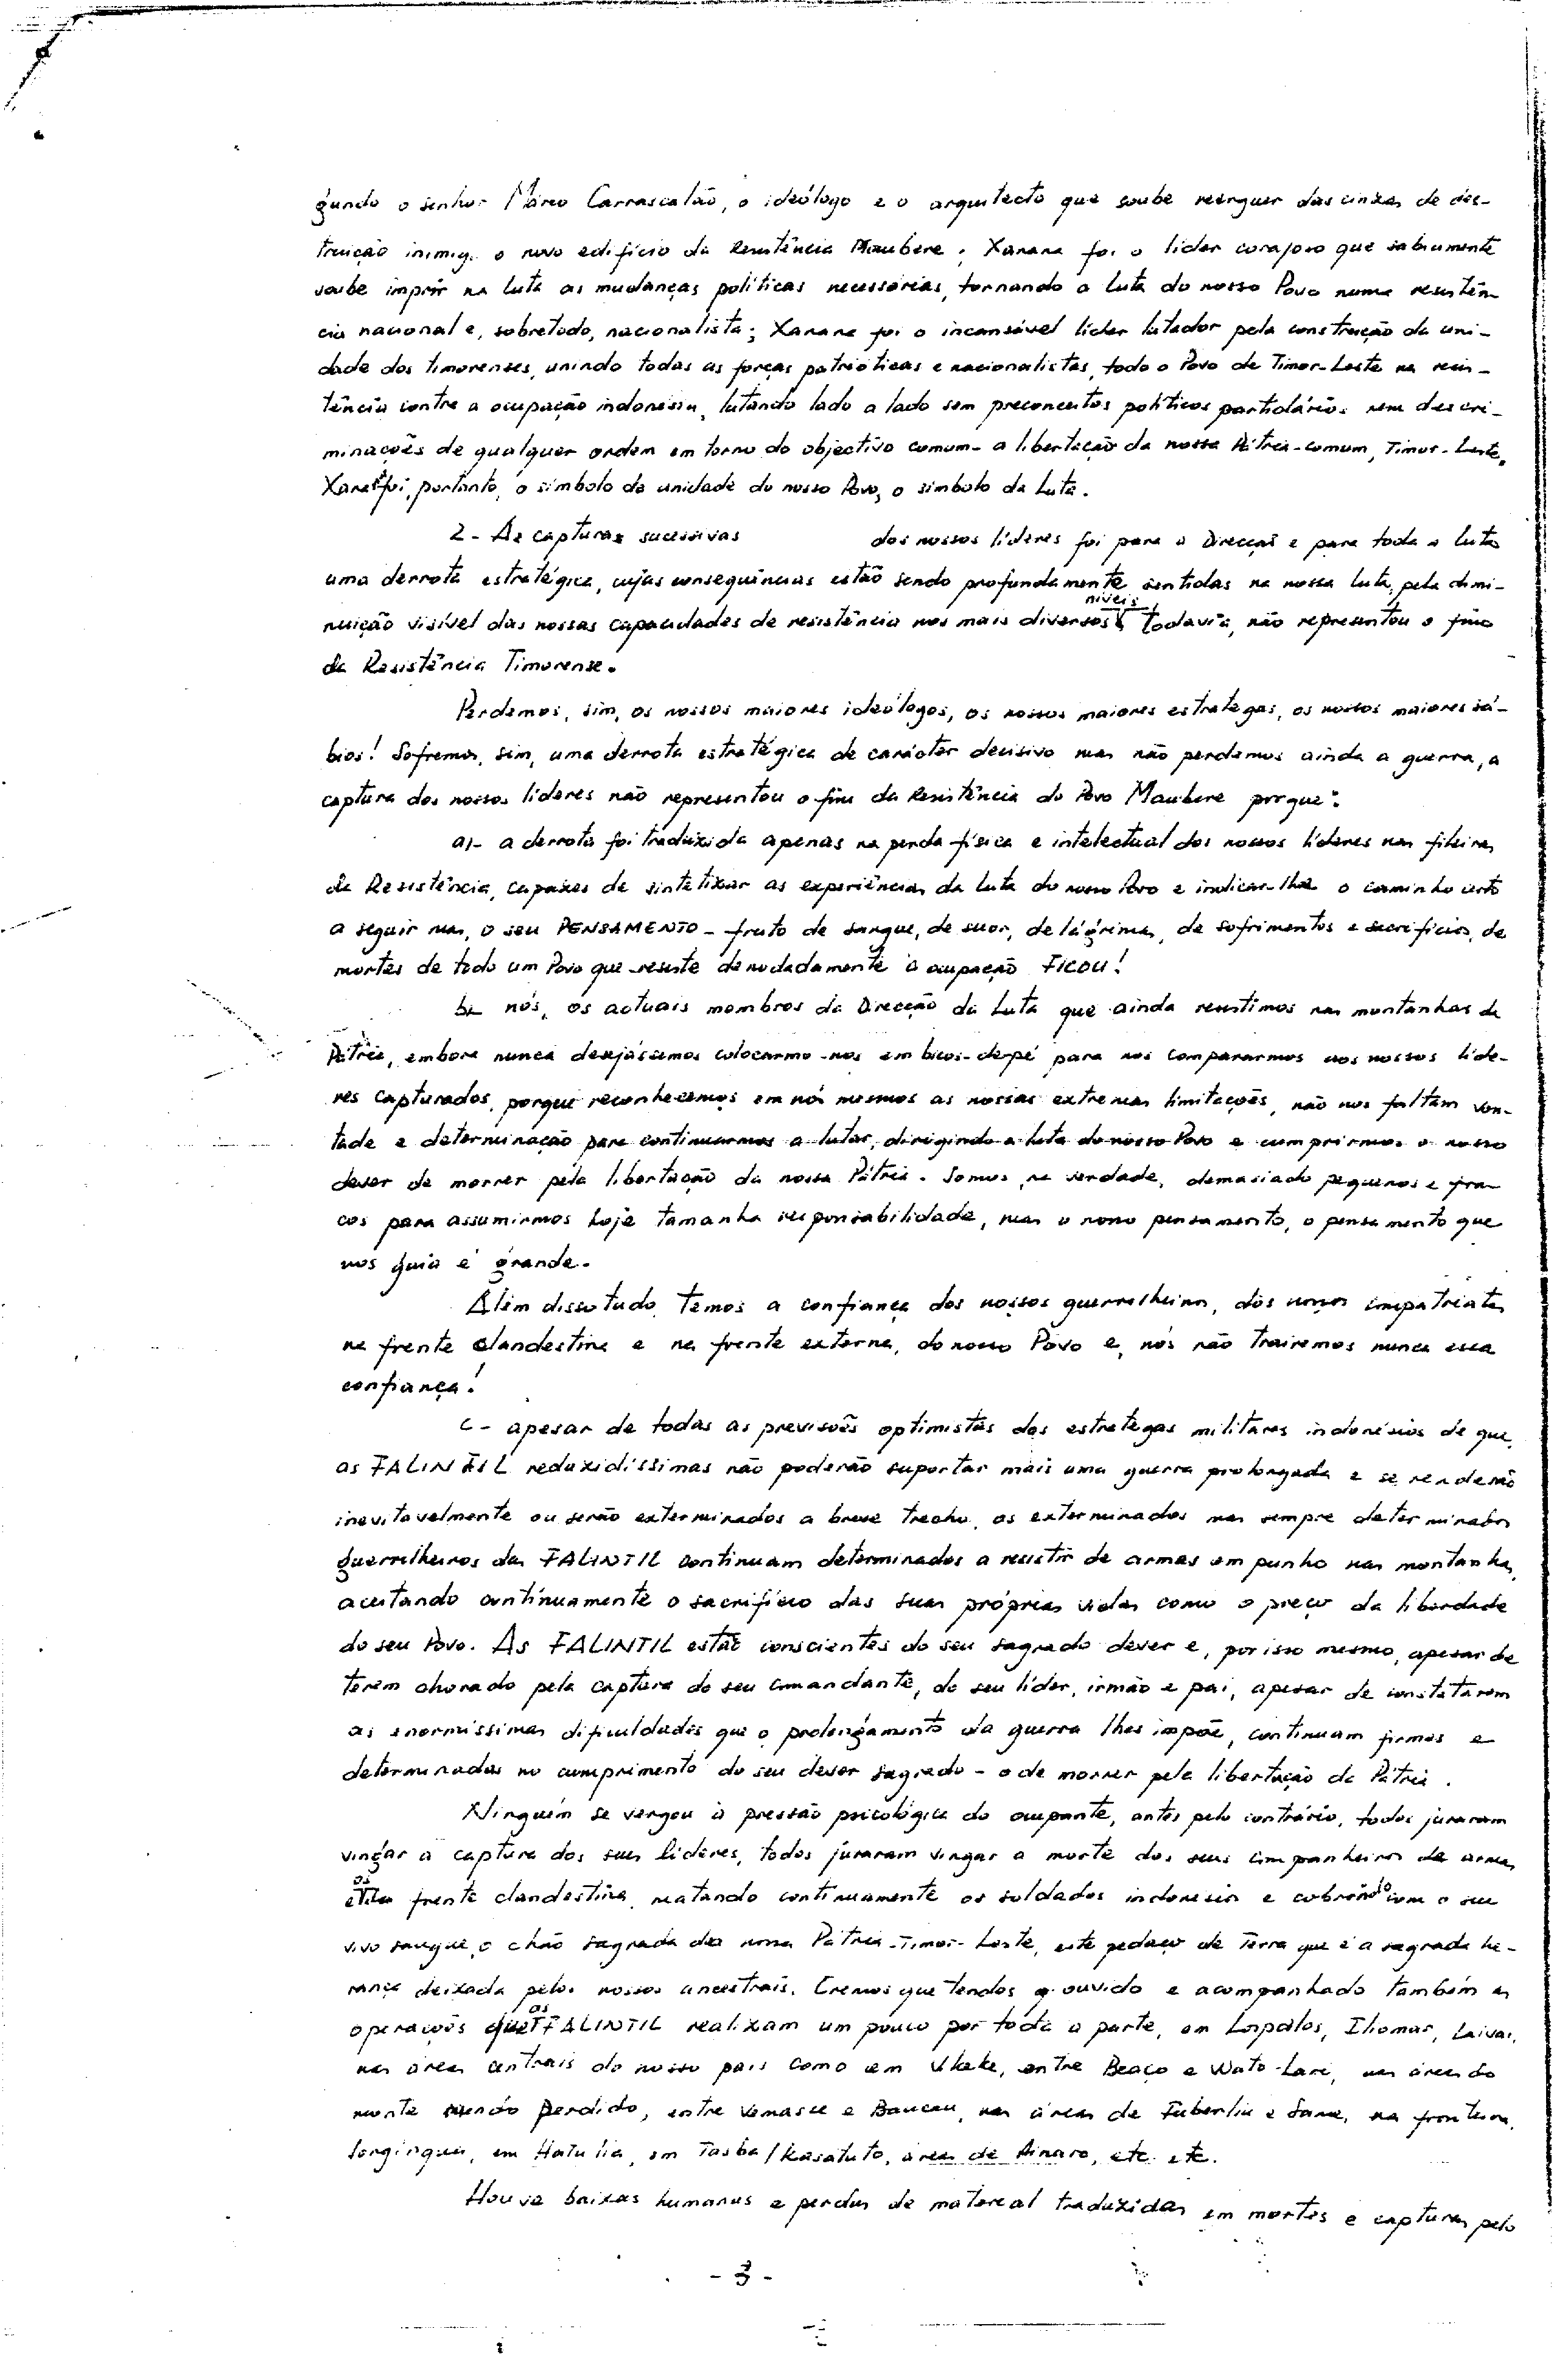 gundo o senhor Mário Carrascalão, o ideólogo e o arquitecto que soube reerguer das cinzas de des-
truição inimig. o novo edifício da Resistência Maubere; Xanana foi o líder corajoso que sabiamente
soube imprir na luta as mudanças políticas necessárias, tornando a luta do nosso Povo numa resistên-
cia nacional e, sobretudo, nacionalista; Xanana foi o incansável líder lutador pela construção da uni-
dade dos timorenses, unindo todas as forças patrióticas e nacionalistas, todo o Povo de Timor-Leste na resis-
tência contra a ocupação indonésia, lutando lado a lado sem preconceitos políticos partidários nem descri-
minações de qualquer ordem em torno do objectivo comum - a libertação da nossa Pátria-comum, Timor-Leste.
foi, portanto, o símbolo da unidade do nosso Povo, o símbolo da Luta.
2 - As capturas sucessivas dos nossos líderes foi para a Direcção e para toda a luta
uma derrota estratégica, cujas consequências estão sendo profundamente sentidas na nossa luta, pela dimi-
nuição visível das nossas capacidades de resistência nos mais diversos níveis. Todavia, não representou o fim
da Resistência Timorense.
Perdemos, sim, os nossos maiores ideólogos, os nossos maiores estrategas, os nossos maiores sá-
bios! Sofremos, sim, uma derrota estratégica de carácter decisivo mas não perdemos ainda a guerra, a
captura dos nossos líderes não representou o fim da Resistência do Povo Maubere porque:
a)- a derrota foi traduzida apenas na perda física e intelectual dos nossos líderes nas fileiras
da Resistência, capazes de sintetizar as experiências da luta do nosso Povo e indicar-lhe o caminho certo
a seguir mas, o seu PENSAMENTO - fruto de sangue, de suor, de lágrimas, de sofrimentos e sacrifícios, de
mortes de todo um Povo que resiste denodadamente à ocupação FICOU!
b- nós, os actuais membros da Direcção da Luta que ainda resistimos nas montanhas da
Pátria, embora nunca desejássemos colocarmo-nos em bicos-de-pé para nos compararmos aos nossos líde-
res capturados, porque reconhecemos em nós mesmos as nossas extremas limitações, não nos faltam von-
tade e determinação para continuarmos a lutar, dirigindo a luta do nosso Povo e cumprirmos o nosso
dever de morrer pela libertação da nossa Pátria. Somos, na verdade, demasiado pequenos e fra-
cos para assumirmos hoje tamanha responsabilidade, mas o nosso pensamento, o pensamento que
nos guia é grande.
Além disso tudo, temos a confiança dos nossos guerrilheiros, dos nossos compatriotas
na frente clandestina e na frente externa, do nosso Povo e, nós não trairemos nunca essa
confiança!
c - apesar de todas as previsões optimistas dos estrategas militares indonésios de que,
as FALINTIL reduzidíssimas não poderão suportar mais uma guerra prolongada e se renderão
inevitavelmente ou serão exterminados a breve trecho, os exterminados mas sempre determinados
guerrilheiros das FALINTIL continuam determinados a resistir de armas em punho nas montanhas,
aceitando continuamente o sacrifício das suas próprias vidas como o preço da liberdade
do seu Povo. As FALINTIL estão conscientes do seu sagrado dever e, por isso mesmo, apesar de
terem chorado pela captura do seu comandante, do seu líder, irmão e pai, apesar de constatarem
as enormíssimas dificuldades que o prolongamento da guerra lhes impõe, continuam firmes e
determinadas no cumprimento do seu dever sagrado - o de morrer pela libertação da Pátria.
Ninguém se vergou à pressão psicológica do ocupante, antes pelo contrário, todos juraram
vingar a captura dos seus líderes, todos juraram vingar a morte dos seus companheiros de armas
frente clandestina, matando continuamente os soldados indonésios e cobrindo com o seu
vivo sangue, o chão sagrado da nossa Pátria - Timor-Leste, este pedaço de Terra que é a sagrada he-
rança deixada pelos nossos ancestrais. Cremos que tendes ouvido e acompanhado também as
operações que as FALINTIL realizam um pouco por toda a parte, em Lospalos, Iliomar, Laivai,
nas áreas centrais do nosso país como em Ulale, entre Beaço e Wato-Lari, nas áreas do
monte mundo Perdido, entre Vemasse e Baucau, nas áreas de Tuberliu e Same, na fronteira,
longínqua, em Hatulia, em Tasba/Kasatuto, áreas de Ainaro, etc. etc.
Houve baixas humanas e perdas de material traduzidas em mortes e capturas pelo
- 3 -